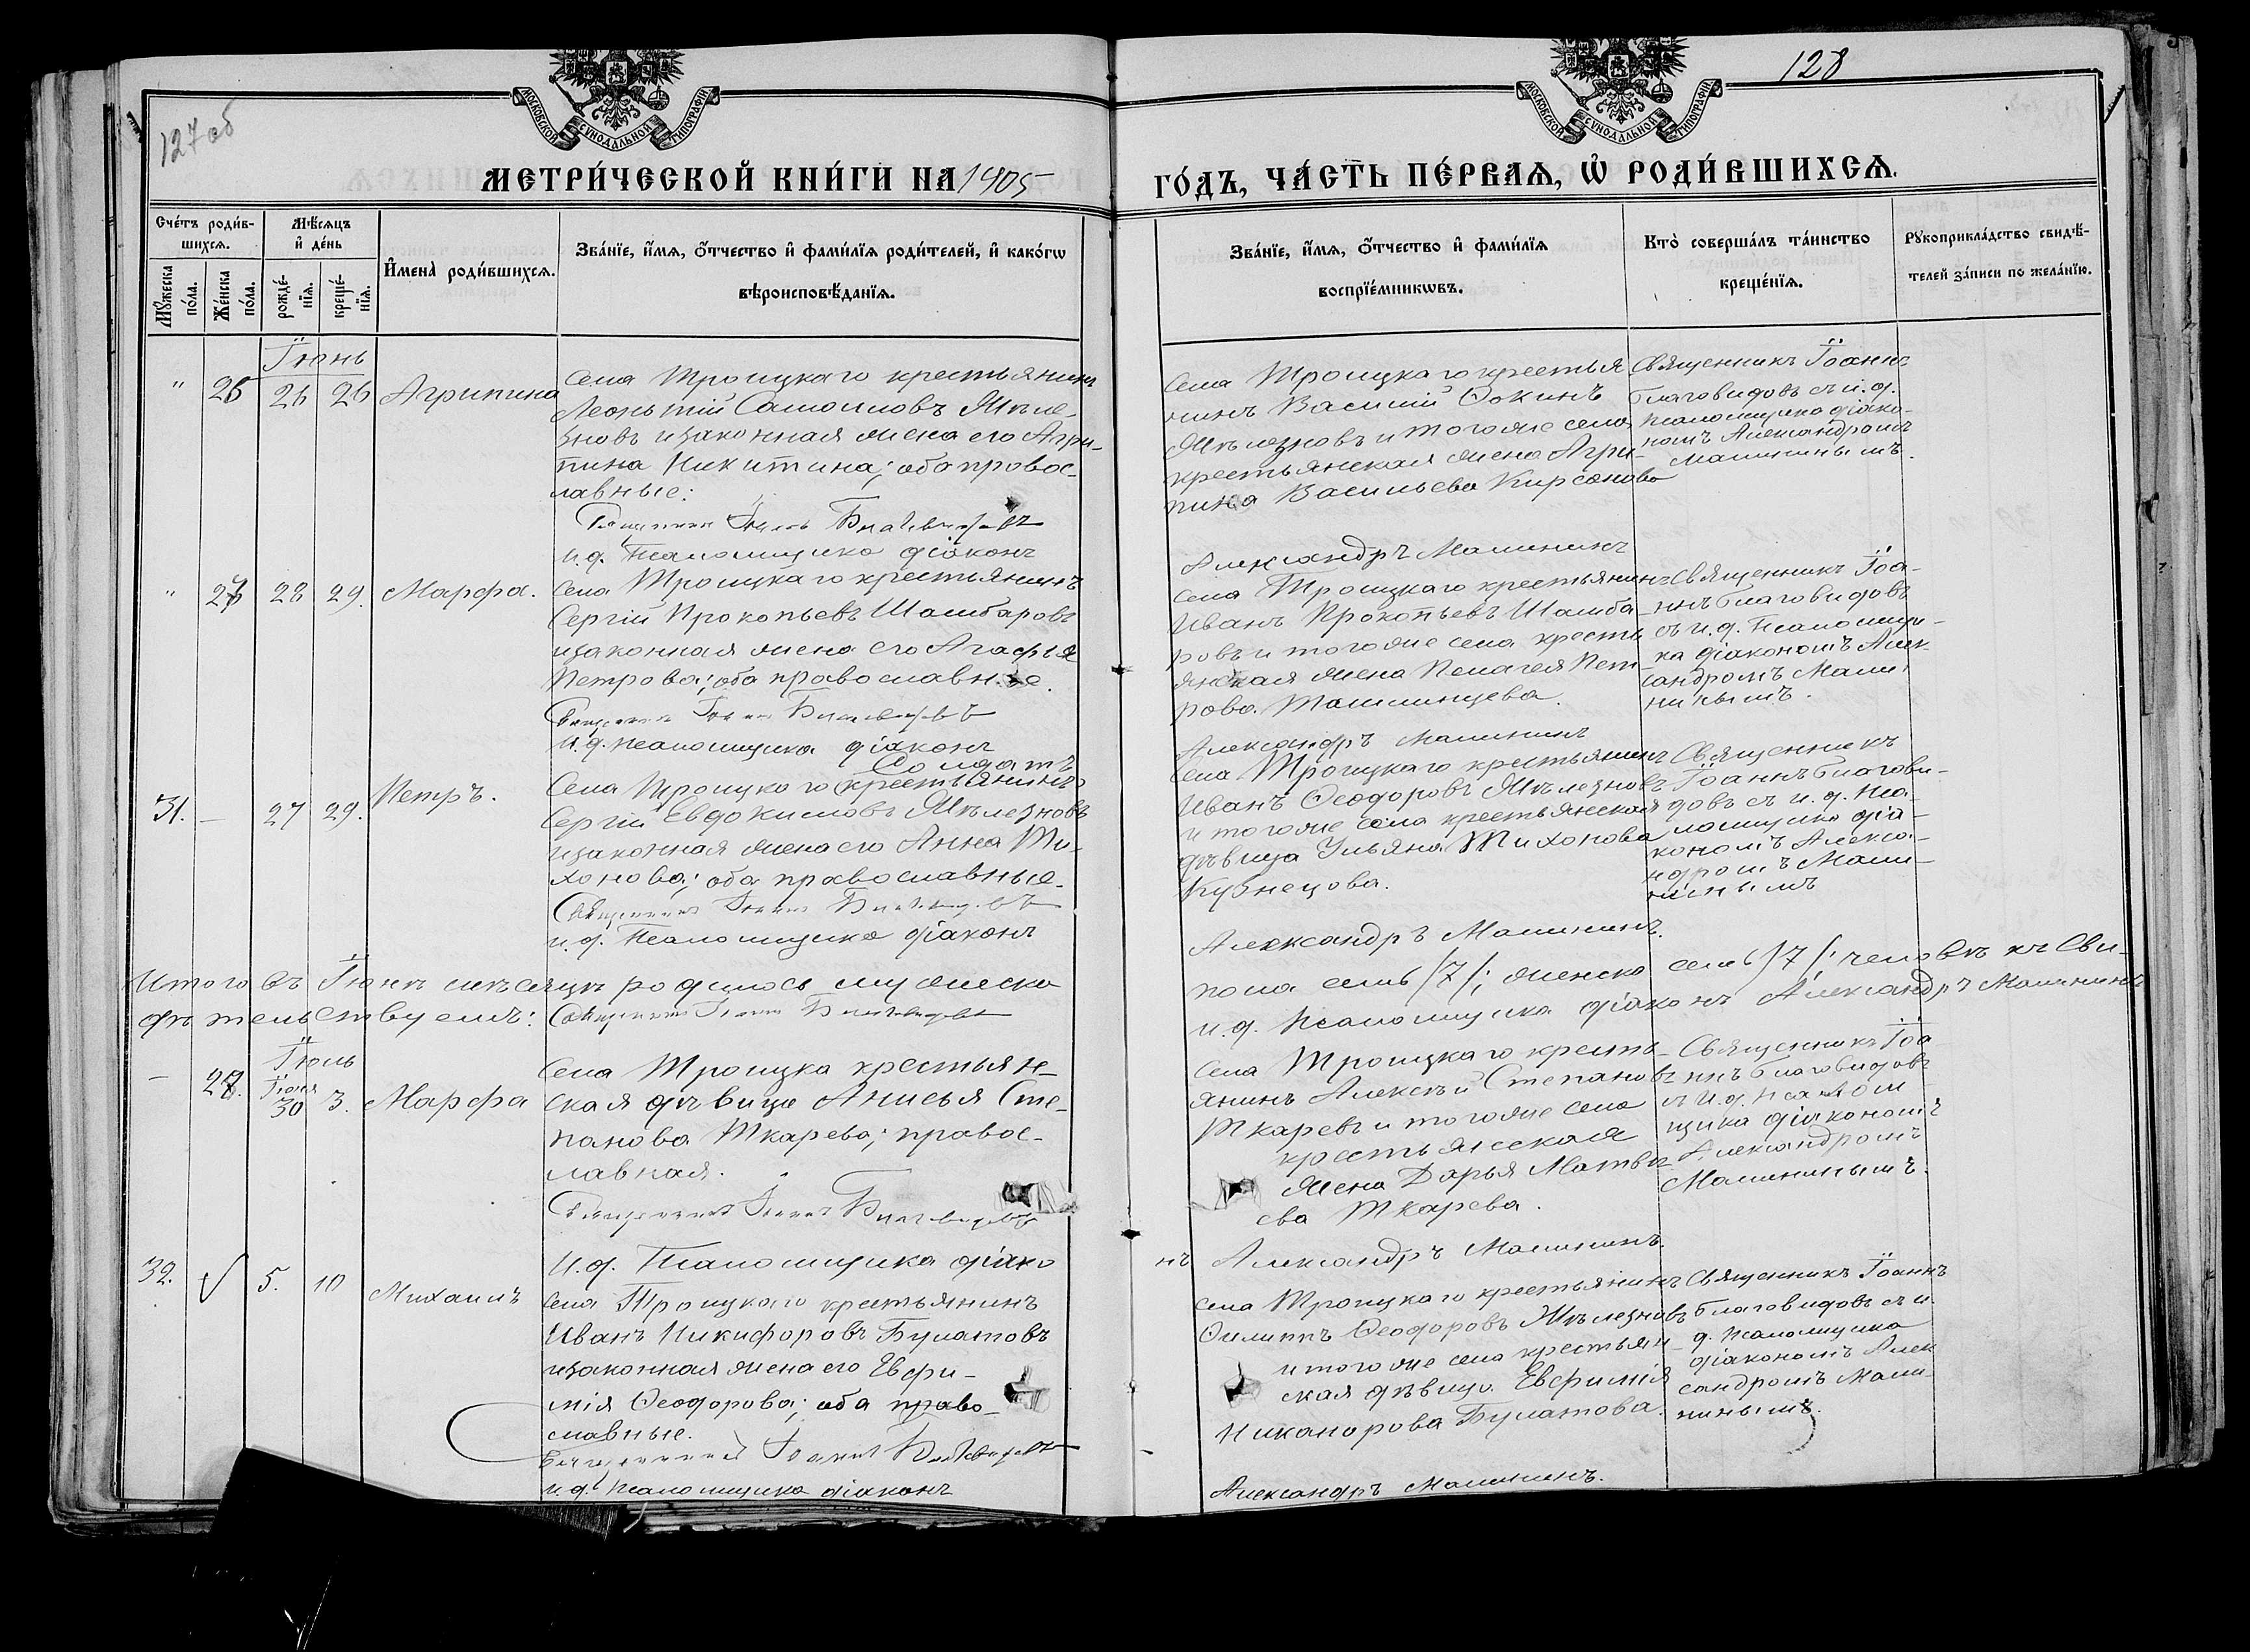 127об
128
МОСКОВСКОЙ СѴНОДАЛЬНОЙ ТИПОГРАФІИ
МОСКОВСКОЙ СѴНОДАЛЬНОЙ ТИПОГРАФІИ
МЕТРИ́ЧЕСКОЙ КНИ́ГИ НА 1905
ГО́ДЪ, ЧА́СТЬ ПЕ́РВАѦ, Ѡ҆ РОДИ́ВШИХСѦ.
Сче́тъ роди́в-
шихсѧ.
Мꙋ́жеска
по́ла.
Же́нска
по́ла.
Мѣ́сѧцъ
и҆ де́нь
рожде́-
нїѧ.
креще́-
нїѧ.
И҆мена̀ роди́вшихсѧ.
Зва́нїе, и҆́мѧ, ѻ҆́тчество и҆ фами́лїѧ роди́телей, и҆ како́гѡ
вѣроисповѣ́данїѧ.
Зва́нїе, и҆́мѧ, ѻ҆́тчество и҆ фами́лїѧ
воспрїе́мникѡвъ.
Кто̀ соверша́лъ та́инство
креще́нїѧ.
Рꙋкоприкла́дство свидѣ́-
телей за́писи по жела́нїю.
Іюнь
" 26 26 26 Агрипина
Села Троицкаго крестьянинъ
Леонтій Самоиловъ Желе-
зновъ и законная жена его Агри-
пина Никитина; оба правос-
лавные:
Священникъ Іоаннъ Благовидовъ
и.д. Псаломщика діаконъ
Села Троицкаго крестья-
нинъ Василій Ѳокинъ
Желѣзновъ и тогоже села
крестьянская жена Агри-
пина Васильева Кирсанова
Александръ Малининъ
Священникъ Іоаннъ
Благовидовъ съ и.д.
псаломщика діако-
номъ Александромъ
Малининымъ.
" 27 28 29. Марфа.
Села Троицкаго крестьянинъ
Сергій Прокопьевъ Шамбаровъ
и законная жена его Агафья
Петрова; оба православные.
Священникъ Іоаннъ Благовидовъ
И.д. псаломщика діаконъ
Села Троицкаго крестьянинъ
Иванъ Прокопьевъ Шамба-
ровъ и тогоже села кресть
янская жена Пелагея Пет-
рова
Александръ Малининъ
Священникъ Іоа-
ннъ Благовидовъ
съ и.д. Псаломщи-
ка діакономъ Алек-
сандромъ Мали-
нинымъ.
31. — 27 29. Петръ.
Солдатъ
Села Троицкаго крестьянинъ
Сергій Евдокимовъ Желѣзновъ
и законная жена его Анна Ти-
хонова; оба православные.
Священникъ Іоаннъ Благовидовъ
и.д. Псаломщика діаконъ
Села Троицкаго крестьянинъ
Иванъ Ѳеодоровъ Желѣзновъ
и тогоже села крестьянская
дѣвица Ульяна Тихонова
Кузнецова.
Александръ Малининъ.
Священникъ
Іоаннъ Благови-
довъ съ и.д. Пса-
ломщика діа-
кономъ Алекса-
ндромъ Мали-
нинымъ
Итого въ Іюнѣ мѣсяцѣ родилось мужеска
пола семь /7/; женска семь /7/; человѣкъ къ Сви-
дѣтельствуемъ: Священникъ Іоаннъ Благовидовъ
и.д. Псаломщика діаконъ Александръ Малининъ
Іюль
— 28. Іюня 30 3. Марфа
Села Троицка крестьян-
ская дѣвица Анисья Сте-
панова Ткарева; правос-
лавная.
Священникъ Іоаннъ Благовидовъ
И.д. Псаломщика діако
Села Троицкаго кресть-
янинъ Алексѣй Степановъ
Ткаревъ и тогоже села
крестьянская
жена Дарья Матвѣ-
ева Ткарева.
нъ Александръ Малининъ.
Священникъ Іоа
ннъ Благовидовъ
съ и.д. псалом
щика діакономъ
Александромъ
Малининымъ.
32. 5. 10 Михаилъ
Села Троицкаго крестьянинъ
Иванъ Никифоровъ Булатовъ
и законная жена его Евфи-
мія Ѳеодорова; оба право-
славные.
Священникъ Іоаннъ Благовидовъ
и.д. псаломщика діаконъ
Села Троицкаго крестьянинъ
Филиппъ Ѳеодоровъ Желѣзновъ
и тогоже села крестьян-
ская дѣвица Евфимія
Никанорова Булатова.
Александръ Малининъ.
Священникъ Іоаннъ
Благовидовъ съ и.
д. псаломщика
діакономъ Алек
сандромъ Мали-
нинымъ.